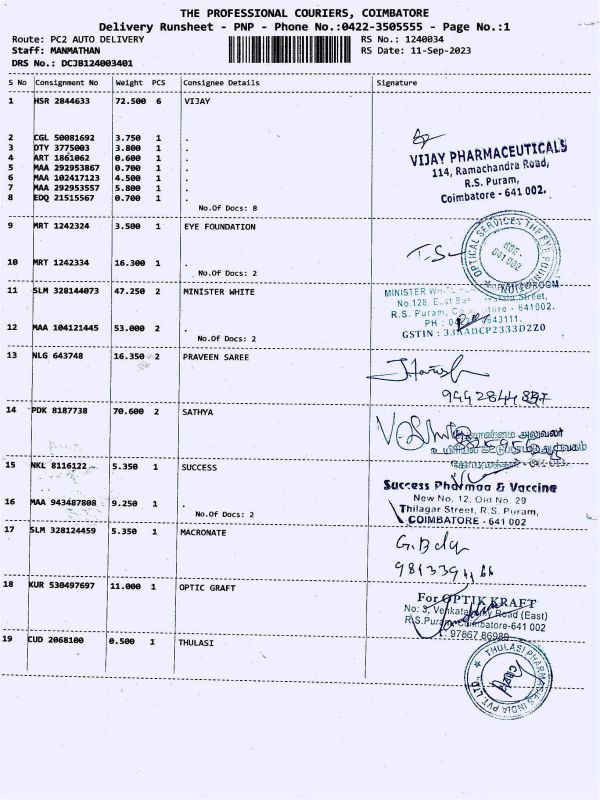 THE PROFESSIONAL COURIERS, COIMBATORE
Delivery Runsheet - PNP - Phone No.:0422-3505555 - Page No.:1
Route: PC2 AUTO DELIVERY
RS No.: 1240034
Staff: MANMATHAN
RS Date: 11-Sep-2023
DRS No.: DCJB124003401
S No Consignment No Weight PCS Consignee Details Signature
1 HSR 2844633 72.500 6 VIJAY
2 CGL 50081692 3.750 1 .
3 DTY 3775003 3.800 1 .
4 ART 1861062 0.600 1 .
5 MAA 292953867 0.700 1 .
6 MAA 102417123 4.500 1 .
7 MAA 292953557 5.800 1 .
8 EDQ 21515567 0.700 1 .
No.Of Docs: 8
VIJAY PHARMACEUTICALS
114, Ramachandra Road,
R.S. Puram,
Coimbatore - 641 002.
9 MRT 1242324 3.500 1 EYE FOUNDATION
10 MRT 1242334 16.300 1 .
No.Of Docs: 2
OPTICAL SERVICES THE EYE FOUNDATION
CBE.
641 002
11 SLM 328144073 47.250 2 MINISTER WHITE
12 MAA 104121445 53.000 2 .
No.Of Docs: 2
MINISTER SHOWROOM
No.128, East Street,
R.S. Puram, - 641002.
PH : 
GSTIN : 33AADCP2333D2Z0
13 NLG 643748 16.350 2 PRAVEEN SAREE
14 PDK 8187738 70.600 2 SATHYA
அலுவலர்
15 NKL 8116122 5.350 1 SUCCESS
16 MAA 943487808 9.250 1 .
No.Of Docs: 2
Success Pharmaa & Vaccine
New No. 12, Old No. 29
Thilagar Street, R.S. Puram,
COIMBATORE - 641 002
17 SLM 328124459 5.350 1 MACRONATE
18 KUR 530497697 11.000 1 OPTIC GRAFT
For OPTIK KRAFT
No: 3, Road (East)
R.S.Puram, Coimbatore-641 002
19 CUD 2068100 0.500 1 THULASI
THULASI PHARMACIES INDIA PVT LTD.